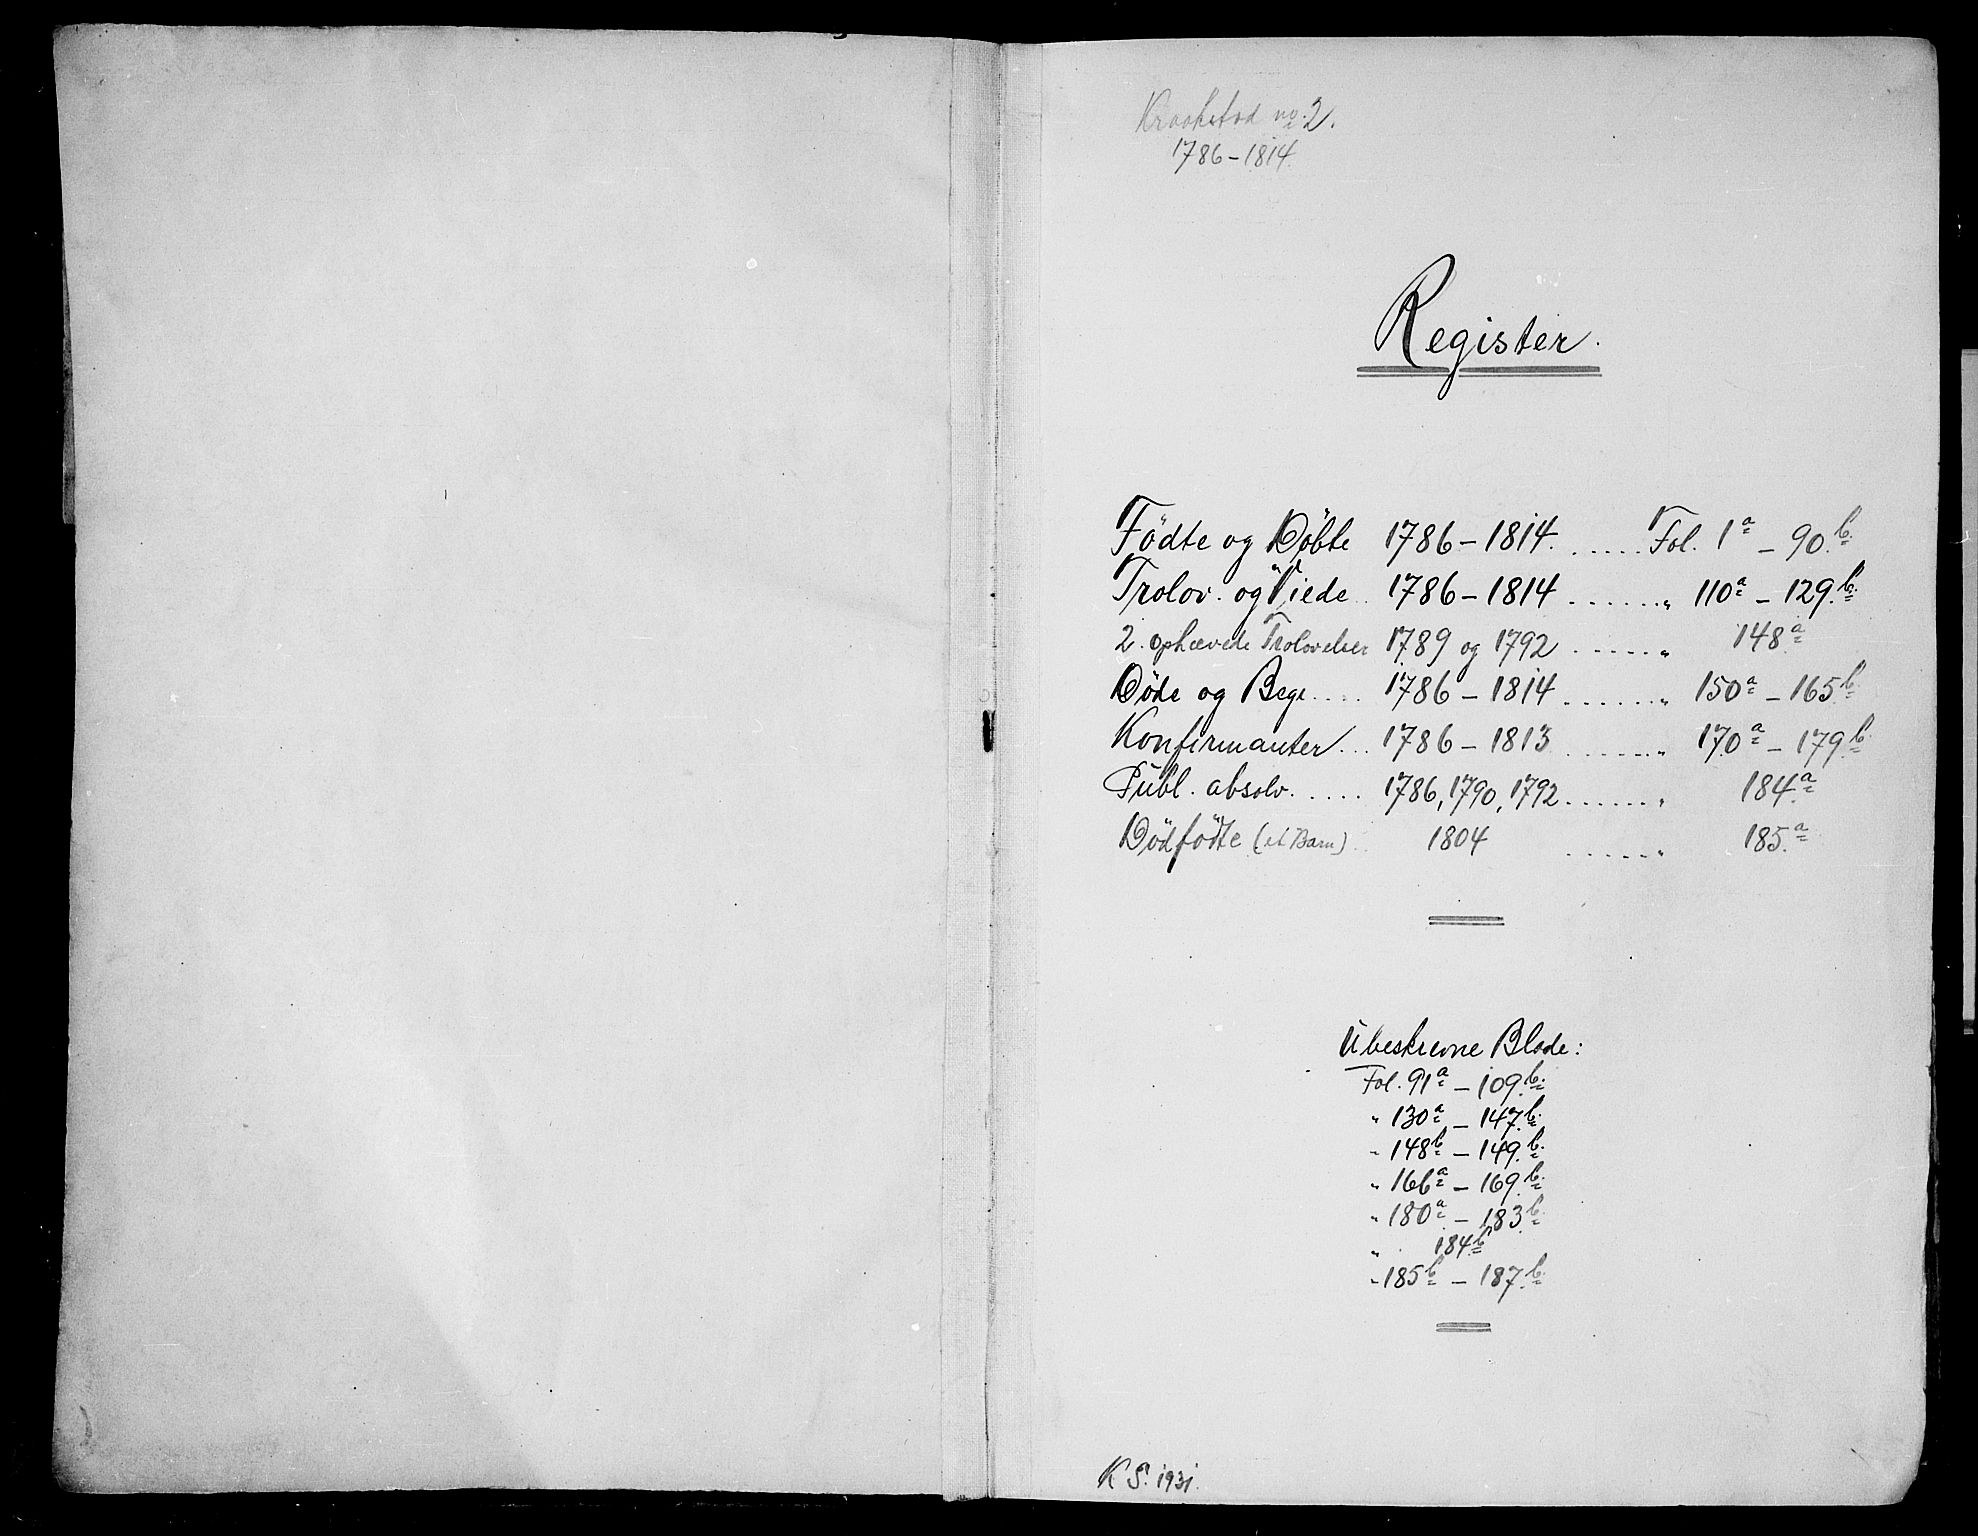 Kraakstad no. 2.
1786-1814.
Register.
Födte og Döbte 1786-1814. ...... Fol. 1a - 90.b.
Trolov. og Viede.. 1786-1814 ....... " 110a - 129.b.
2. ophævede Trolovelser 1789 og 1792 ...... " 148a
Döde og Begr.... 1786-1814 ....... " 150a - 165b.
Konfirmanter... 1786-1813 ....... " 170a - 179.b.
Publ. absolv. .... 1786, 1790, 1792 ...... " 184.a
Dödfödte (et Barn).. 1804 ...... " 185.a
Ubeskrevne Blade:
Fol. 91a - 109.b.
" 130a - 147.b.
" 148b - 149.b.
" 166a - 169.b.
" 180a - 183.b.
" 184.b
" 185b - 187.b.
K S. 1931.